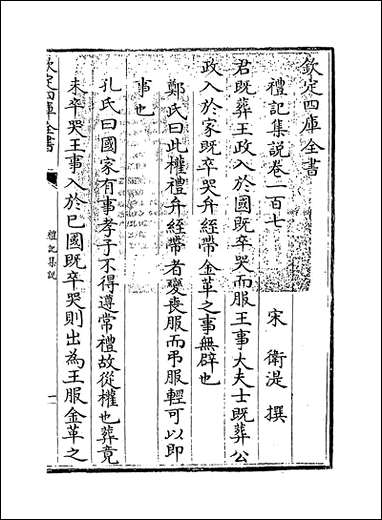 欽定四庫全書
禮記集說卷一百七
宋 衛湜 撰
君既葬王政入於國既卒哭而服王事大夫士既葬公
政入於家既卒哭弁絰帶金革之事無辟也
鄭氏曰此權禮弁絰帶者變喪服而弔服輕可以即
事也
孔氏曰國家有事孝子不得遵常禮故從權也葬竟
未卒哭王事入於已國既卒哭則出為王服金革之
欽定四庫全書
禮記集說
一